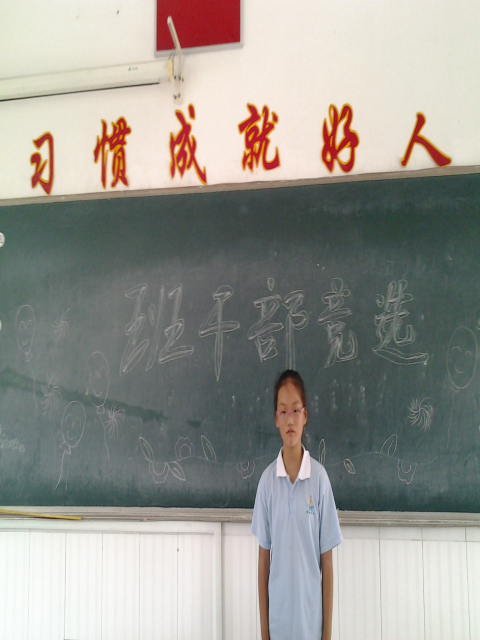 习惯成就好人
班干部竞选